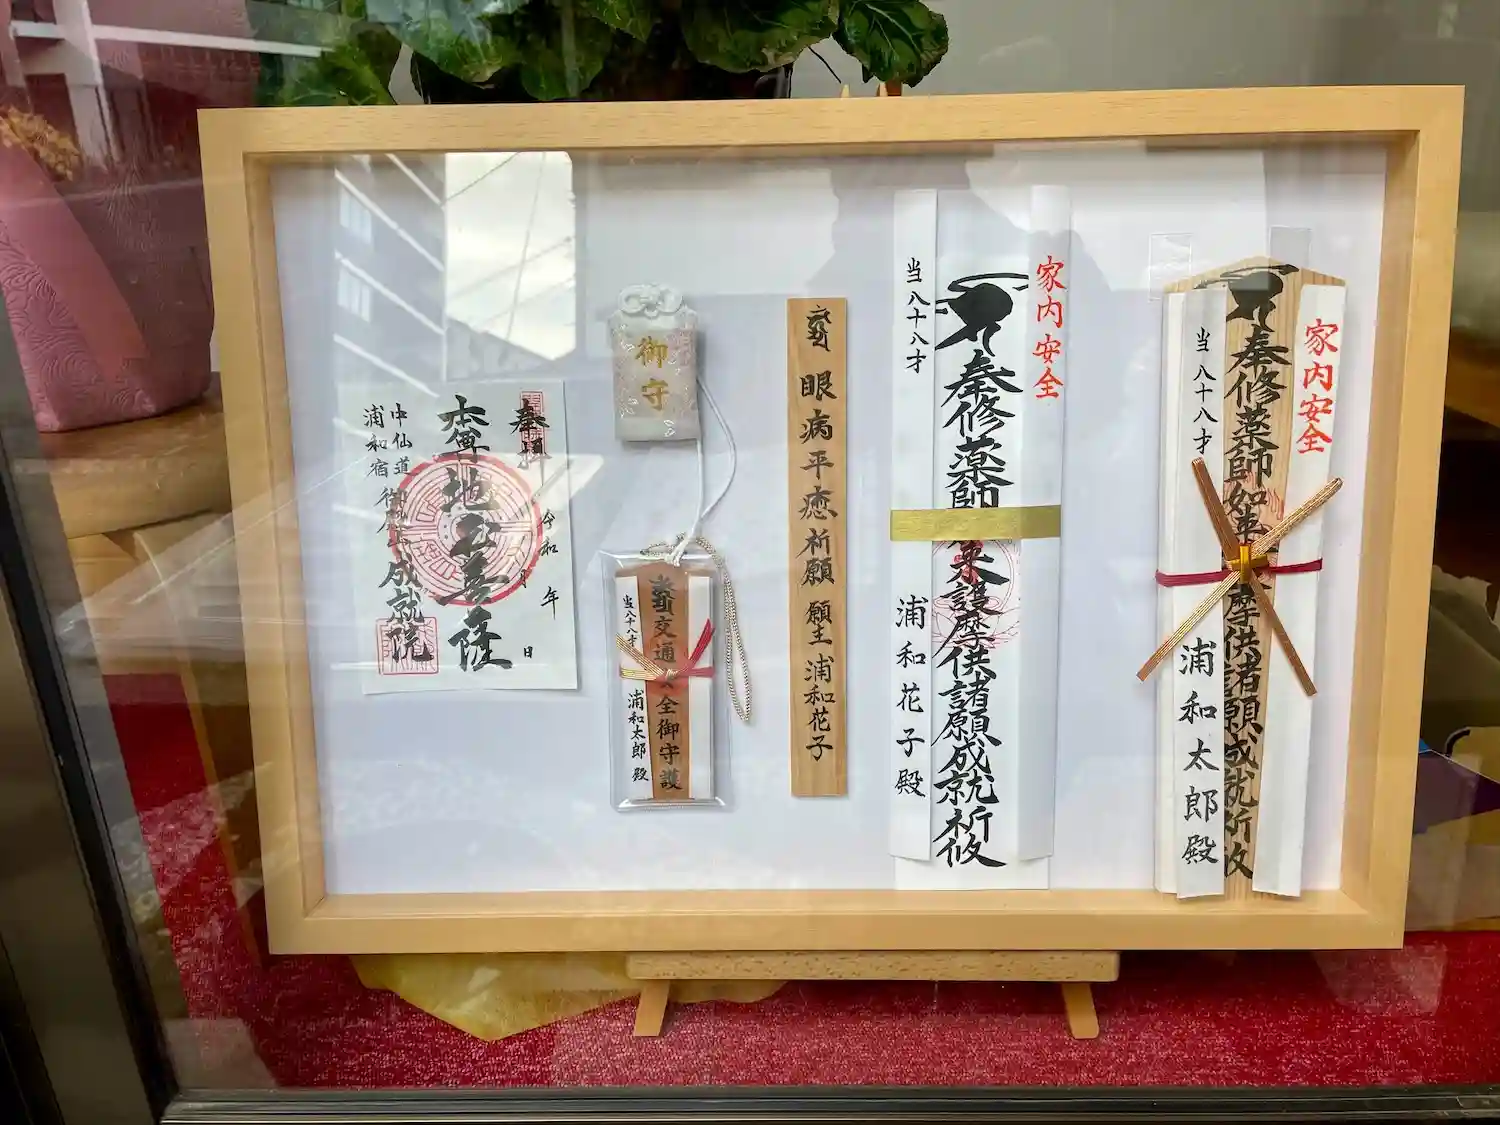 家内安全
奉修薬師如来護摩供諸願成就祈攸
当八十八才
浦和太郎殿
家内安全
奉修薬師如来護摩供諸願成就祈攸
当八十八才
浦和花子殿
眼病平癒祈願 願主 浦和花子
御守
交通安全御守護
当八十八才
浦和太郎殿
奉拝
令和 年 月 日
地蔵菩薩
中仙道
浦和宿
成就院